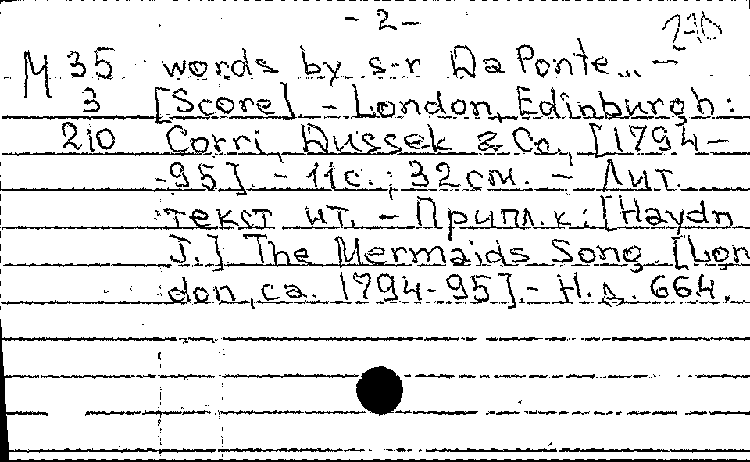 - 2 -
210
M 35 words by s-r Da Ponte... -
3 [Score] - London, Edinburgh:
210 Corri, Dussek & Co., [1794-
-95]. - 11 с.; 32 см. - Лит.
текст ит. - Припл. к: [Haydn
J.] The Mermaids Song. [Lon
don, ca. 1794-95]. - Н. д. 664.